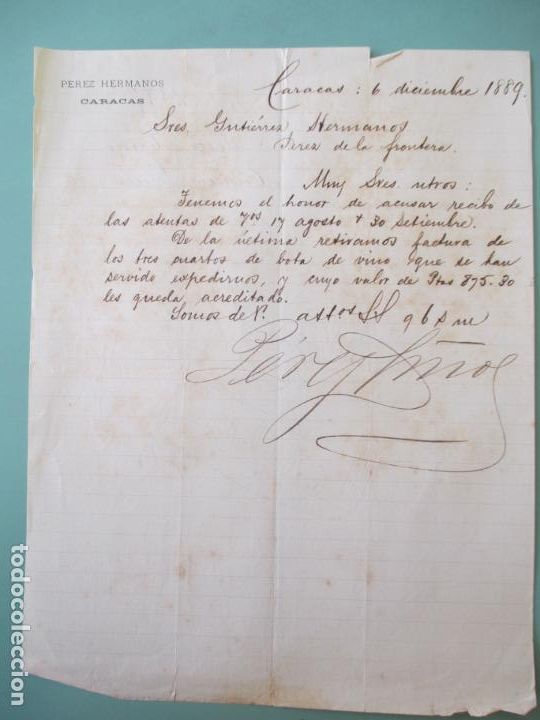 PEREZ HERMANOS
CARACAS
Caracas: 6 diciembre 1889.
Sres. Gutiérrez Hermanos
Jerez de la frontera.
Muy Sres. ntros:
Tenemos el honor de acusar recibo de
las atentas de 17 agosto + 30 setiembre.
De la última retiramos factura de
los tres cuartos de bota de vino que se han
servido expedirnos, y cuyo valor de Ptas 875.30
les queda, acreditado.
Somos de V. attos SS q b s m
Pérez Hnos
todocoleccion